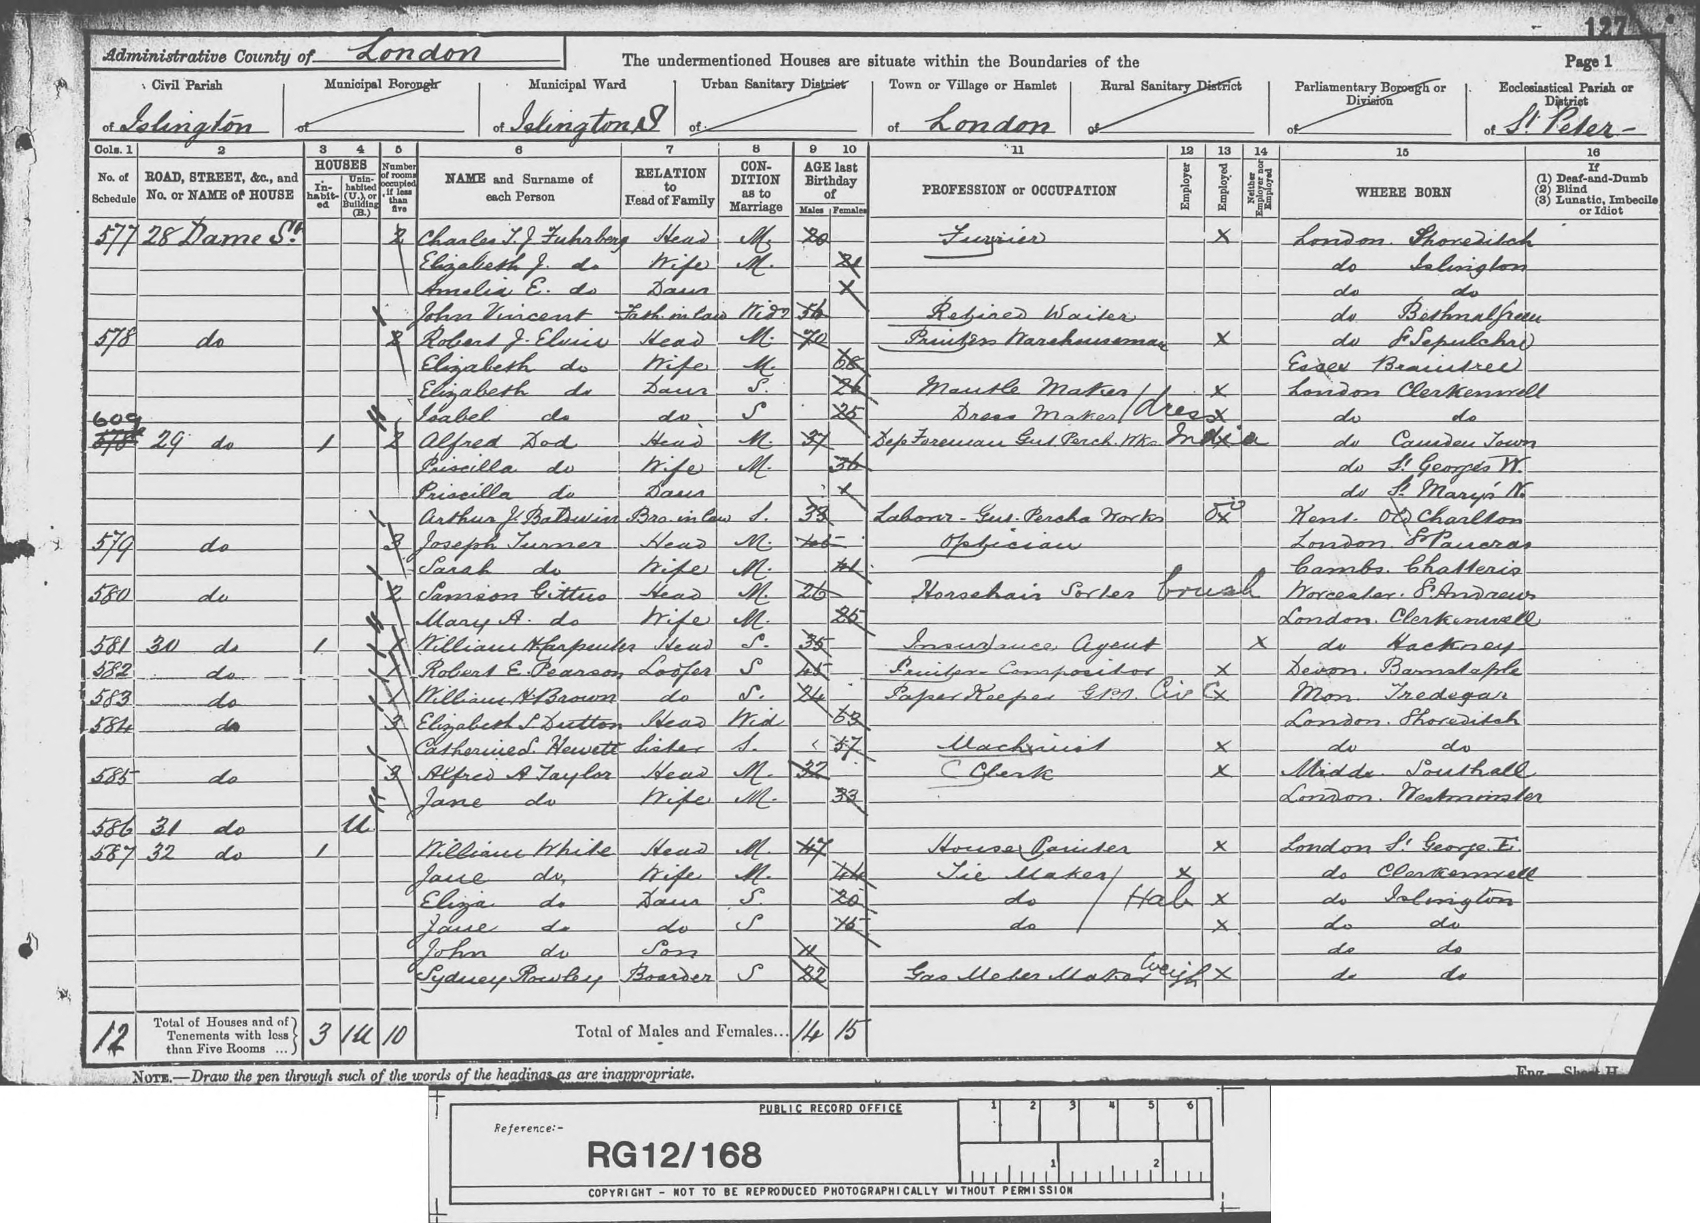 127
Administrative County of London The undermentioned Houses are situate within the Boundaries of the Page 1
Civil Parish Municipal Borough Municipal Ward Urban Sanitary District Town or Village or Hamlet Rural Sanitary District Parliamentary Borough or Division Ecclesiastical Parish or District
of Islington of of Islington S of of London of of of St Peter -
Cols. 1 2 3 4 5 6 7 8 9 10 11 12 13 14 15 16
No. of Schedule ROAD, STREET, &c., and No. or NAME of HOUSE HOUSES In-habit-ed Unin-habited (U.), or Building (B.) Number of rooms occupied if less than five NAME and Surname of each Person RELATION to Head of Family CON-DITION as to Marriage AGE last Birthday of Males Females PROFESSION or OCCUPATION Employer Employed Neither Employer nor Employed WHERE BORN If (1) Deaf-and-Dumb (2) Blind (3) Lunatic, Imbecile or Idiot
577 28 Dame St 2 Charles T. J. Fuhrberg Head M. 20 Furrier X London. Shoreditch
Elizabeth J. do Wife M. 21 do Islington
Amelia E. do Daur X do do
John Vincent Fath. in law Widr 56 Retired Waiter do Bethnal Green
578 do 2 Robert J. Elvin Head M. 70 Printers Warehouseman X do St Sepulchre
Elizabeth do Wife M. 68 Essex Braintree
Elizabeth do Daur S. 26 Mantle Maker X London Clerkenwell
Isabel do do S 25 Dress Maker / dress X do do
609
578 29 do 1 2 Alfred Dod Head M. 37 Dep Foreman Gut. Perch. Wks India X do Camden Town
Priscilla do Wife M. 36 do St George's W.
Priscilla do Daur X do St Mary's N.
Arthur J. Baldwin Bro. in law S. 33 Labour - Gut. Percha Works do X Kent. Old Charlton
579 do 3 Joseph Turner Head M. Optician London. St Pancras
Sarah do Wife M. 41 Cambs. Chatteris
580 do 2 Samson Gittus Head M. 26 Horsehair Sorter brush Worcester. St Andrews
Mary A. do Wife M. 25 London. Clerkenwell
581 30 do 1 1 William H Carpenter Head S. 35 Insurance Agent X do Hackney
582 do 1 Robert E. Pearson Lodger S 45 Printer - Compositor X Devon. Barnstaple
583 do 1 William H Brown do S. 24 Paper Keeper G.P.O. Civ C X Mon. Tredegar
584 do 3 Elizabeth S Dutton Head Wid 63 London. Shoreditch
Catherine S. Hewett Sister S. 57 Machinist X do do
585 do 3 Alfred A Taylor Head M. 32 Clerk X Middx. Southall
Jane do Wife M. 33 London. Westminster
586 31 do U
587 32 do 1 William White Head M. 47 House Painter X London St George. E.
Jane do, Wife M. 44 Tie Maker X do Clerkenwell
Eliza. do Daur S. 20 do / Hab X do Islington
Jane do do S 15 do X do do
John do Son 11 do do
Sydney Rowley Boarder S 22 Gas Meter Maker Weigh X do do
12 Total of Houses and of Tenements with less than Five Rooms ... 3 1U 10 Total of Males and Females... 14 15
NOTE.—Draw the pen through such of the words of the headings as are inappropriate. Eng.—Sheet H.
PUBLIC RECORD OFFICE
1 2 3 4 5 6
Reference:-
RG12/168
1 2
COPYRIGHT - NOT TO BE REPRODUCED PHOTOGRAPHICALLY WITHOUT PERMISSION